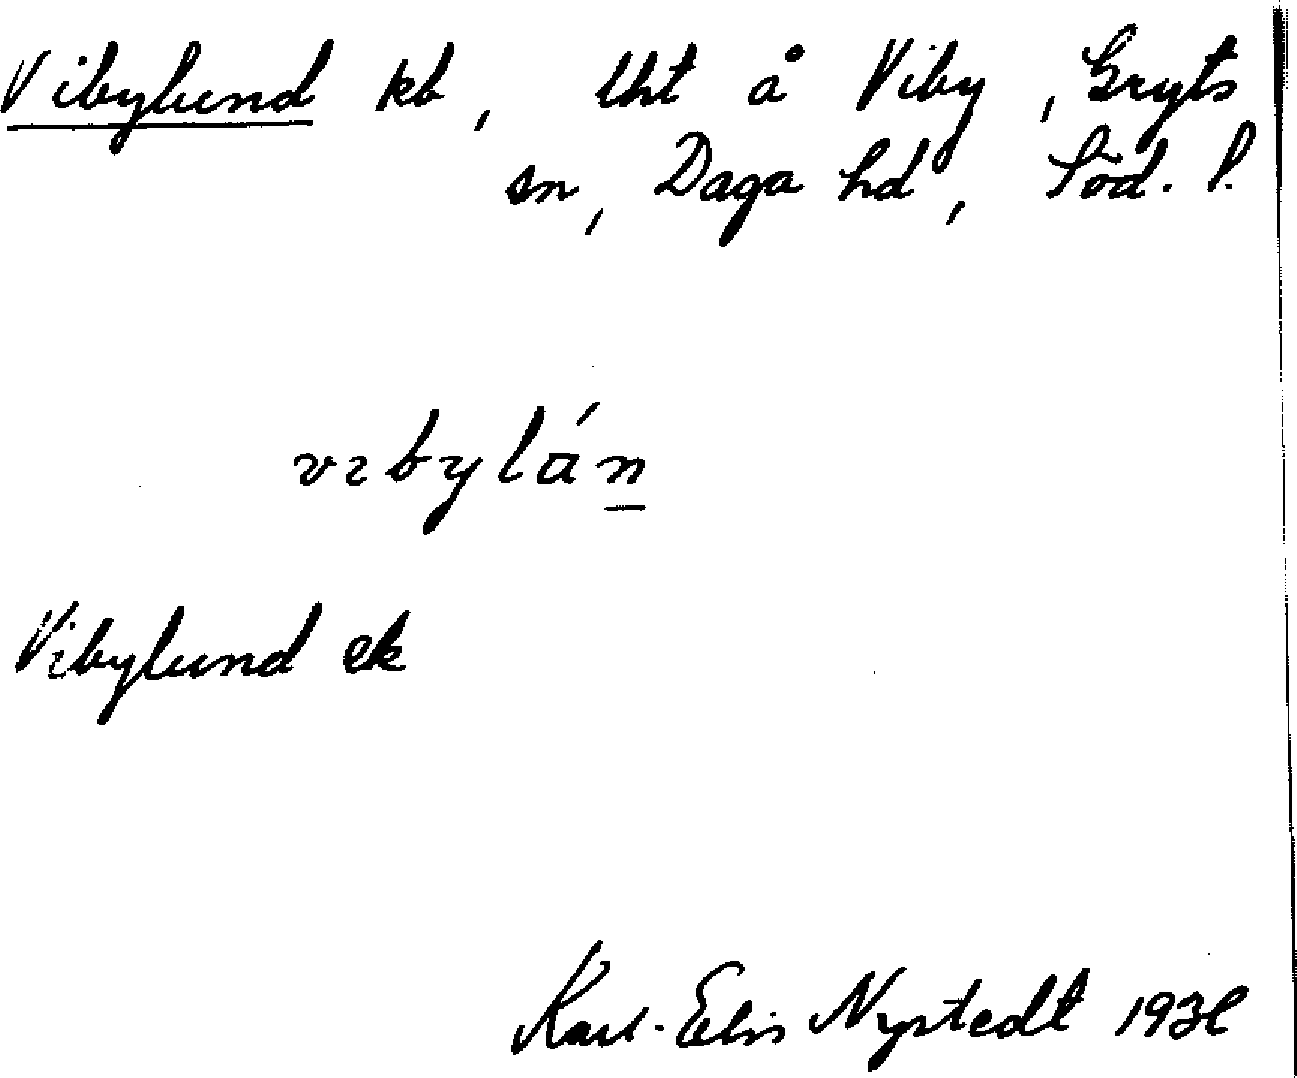 Vibylund kb, lht å Viby, Gryts
sn, Daga hd, Söd. l.
vιbylán
Vibylund ek
Karl-Elis Nystedt